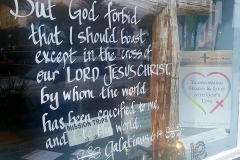 But God forbid
that I should boast
except in the cross of
our LORD JESUS CHRIST,
by whom the world
has been crucified to me,
MISSION TRIPS
and I to the world.
Galatians 6:14
TRANSFORMING
HEARTS & LIVES
WITH GOD'S
LOVE